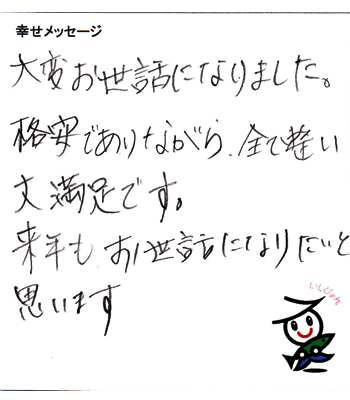 幸せメッセージ
大変お世話になりました。
格安でありながら、全て整い
大満足です。
来年も、お世話になりたいと
思います